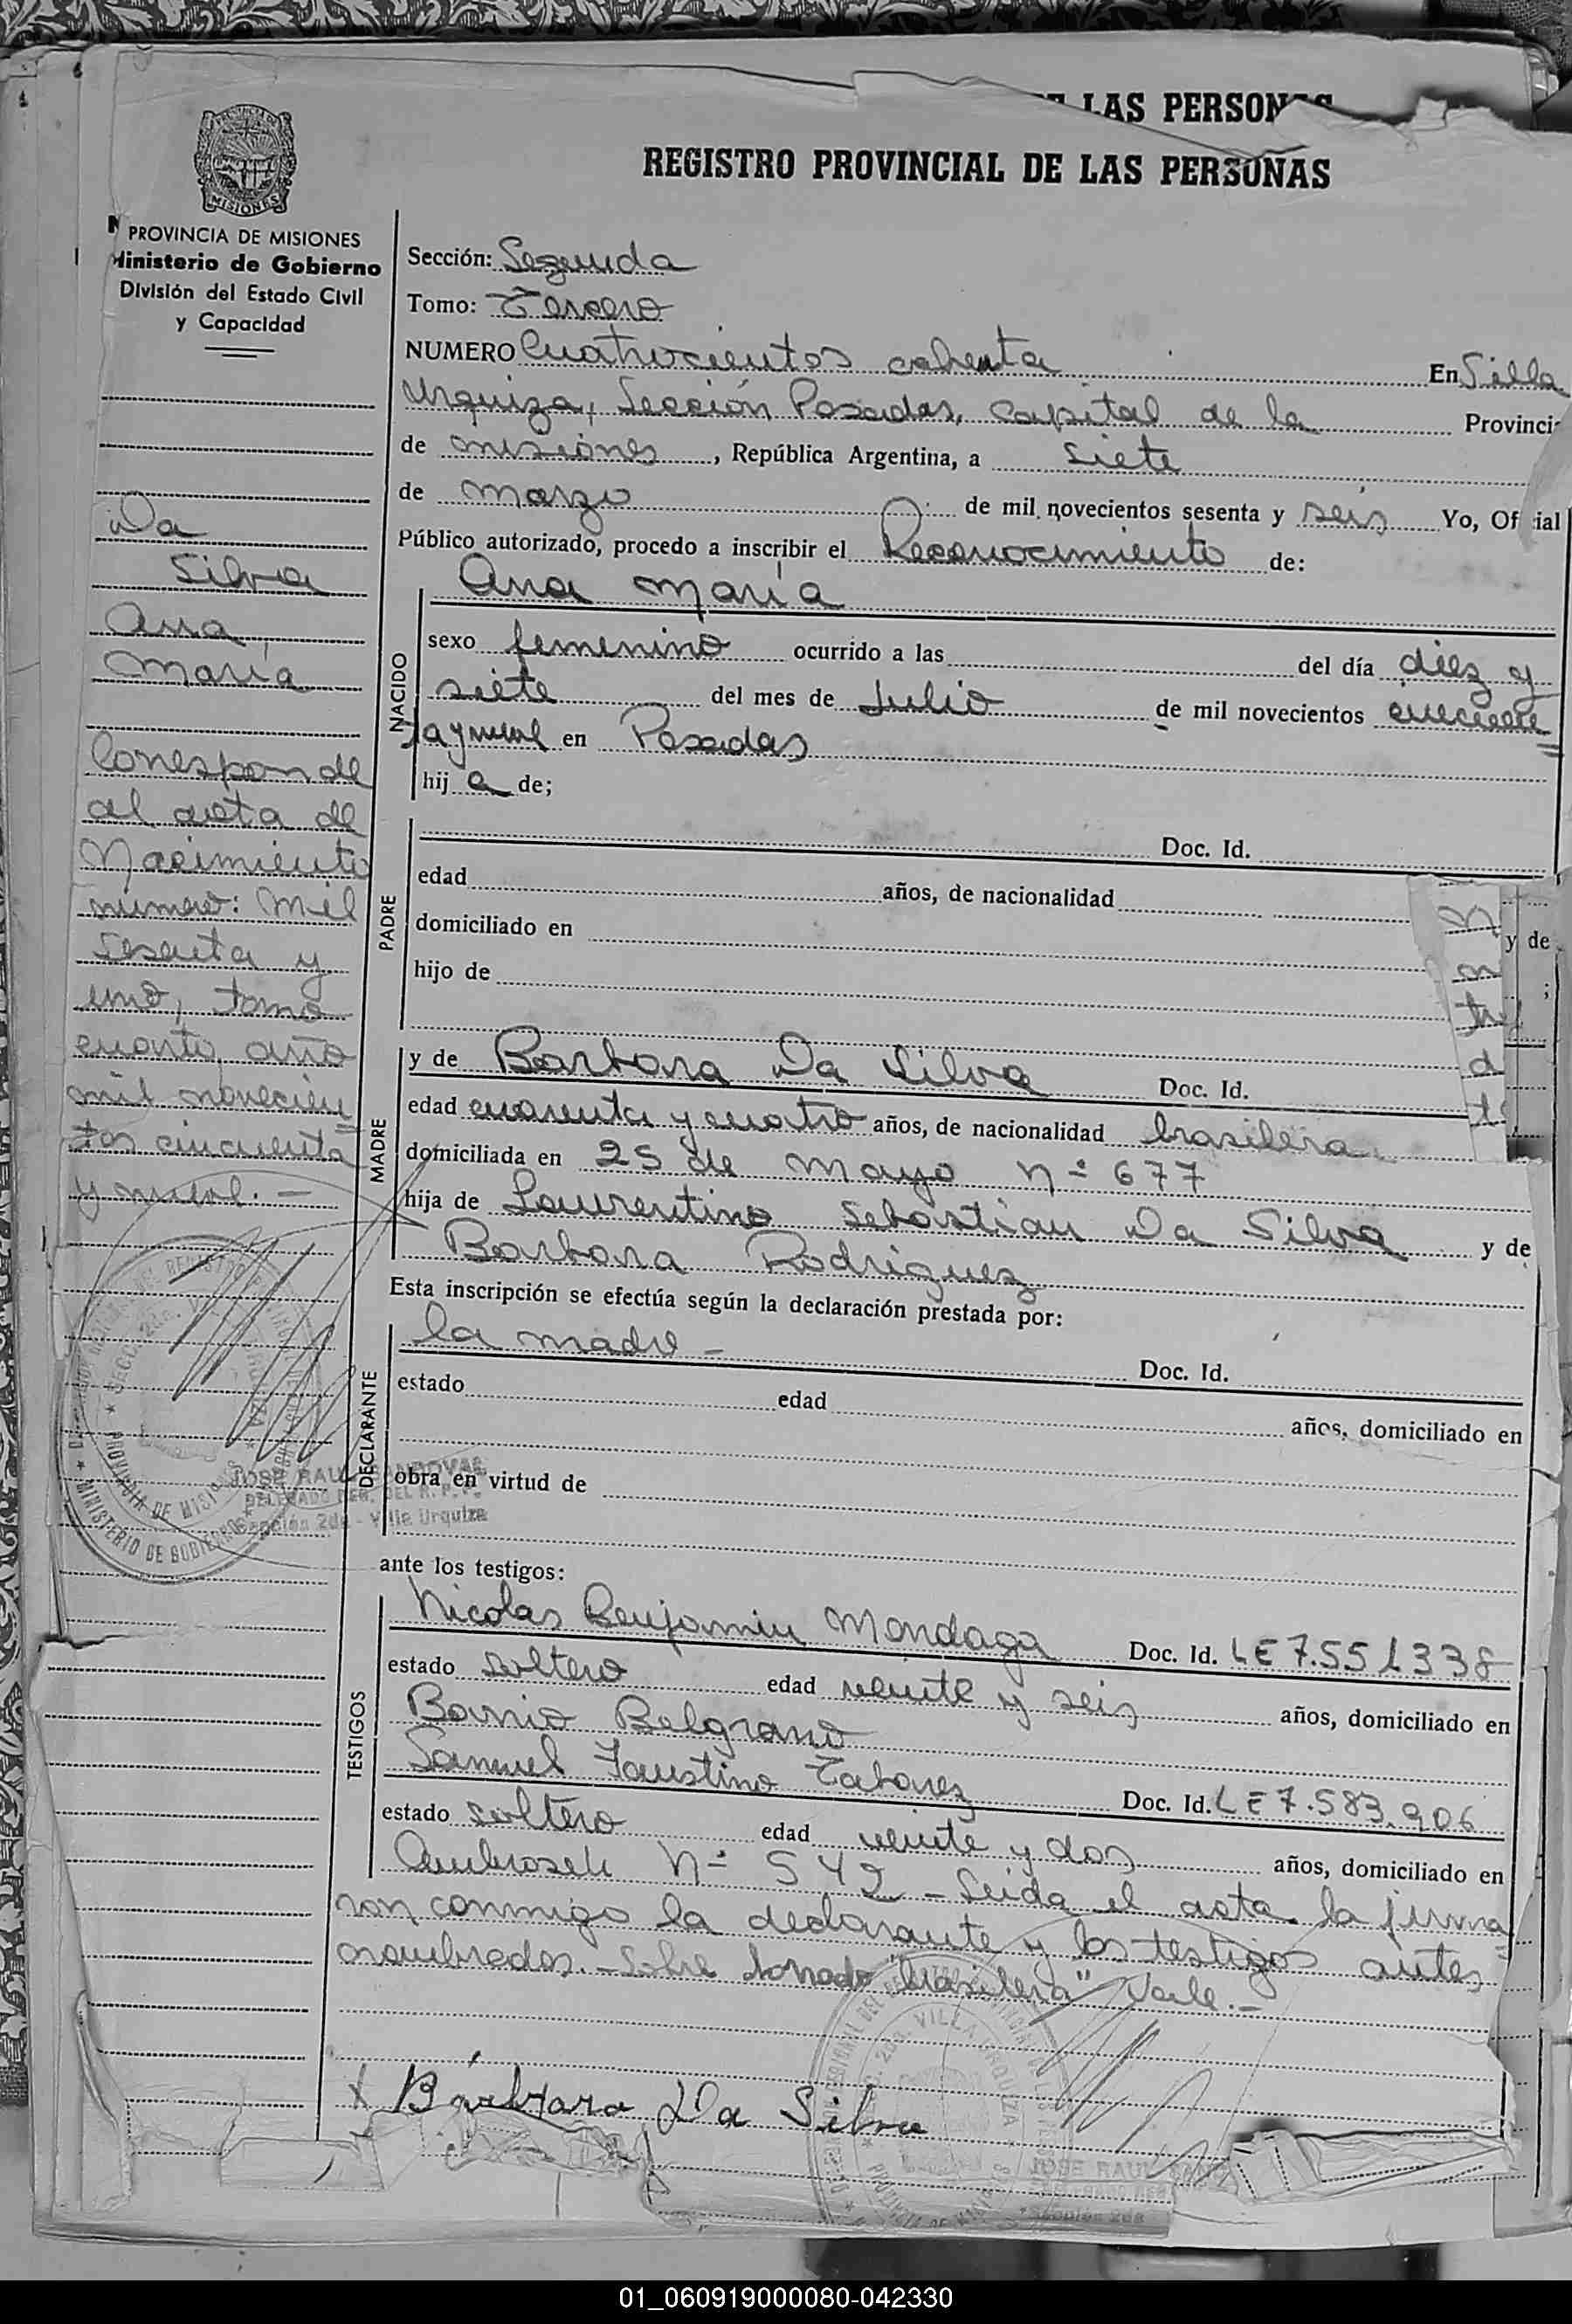 LAS PERSONAS
REGISTRO PROVINCIAL DE LAS PERSONAS
MISIONES
PROVINCIA DE MISIONES
Ministerio de Gobierno
División del Estado Civil
y Capacidad
Da
Silva
Ana
María
Corresponde
al acta de
Nacimiento
número: Mil
sesenta y
uno, tomo
cuarto, año
mil novecien
tos cincuenta
y nueve. —
Sección: Segunda
Tomo: Tercero
NUMERO Cuatrocientos ochenta En Villa
Urquiza, Sección Posadas, capital de la Provinci
de misiones, República Argentina, a siete
de marzo de mil novecientos sesenta y seis Yo, Oficial
Público autorizado, procedo a inscribir el Reconocimiento de:
NACIDO
Ana María
sexo femenino ocurrido a las del día diez y
siete del mes de Julio de mil novecientos cincuen=
ta y nueve en Posadas
hij a de;
PADRE
Doc. Id.
edad años, de nacionalidad
domiciliado en
y de
hijo de
MADRE
y de Barbara Da Silva Doc. Id.
edad cuarenta y cuatro años, de nacionalidad brasilera
domiciliada en 25 de mayo nº 677
hija de Laurentino Sebastian Da Silva y de
Barbara Rodriguez
Esta inscripción se efectúa según la declaración prestada por:
DECLARANTE
la madre — Doc. Id.
estado edad años, domiciliado en
obra en virtud de
JOSE RAUL SANDOVAL
DELEGADO REG. DEL R. P. P.
Sección 2da - Villa Urquiza
PROVINCIA DE MISIONES
MINISTERIO DE GOBIERNO
ante los testigos:
TESTIGOS
Nicolas Benjamin Mondaga Doc. Id. LE 7.551338
estado soltero edad veinte y seis años, domiciliado en
Barrio Belgrano
Samuel Faustino Tabarez Doc. Id. LE 7.583.906
estado soltero edad veinte y dos años, domiciliado en
Nº 542 — Leida el acta la firma=
ron conmigo la declarante y los testigos antes
nombrados. — Sobre borrado "brasilera" Vale. —
x Bárbara Da Silva
VILLA URQUIZA
JOSE RAUL
Sección 2da
01_060919000080-042330